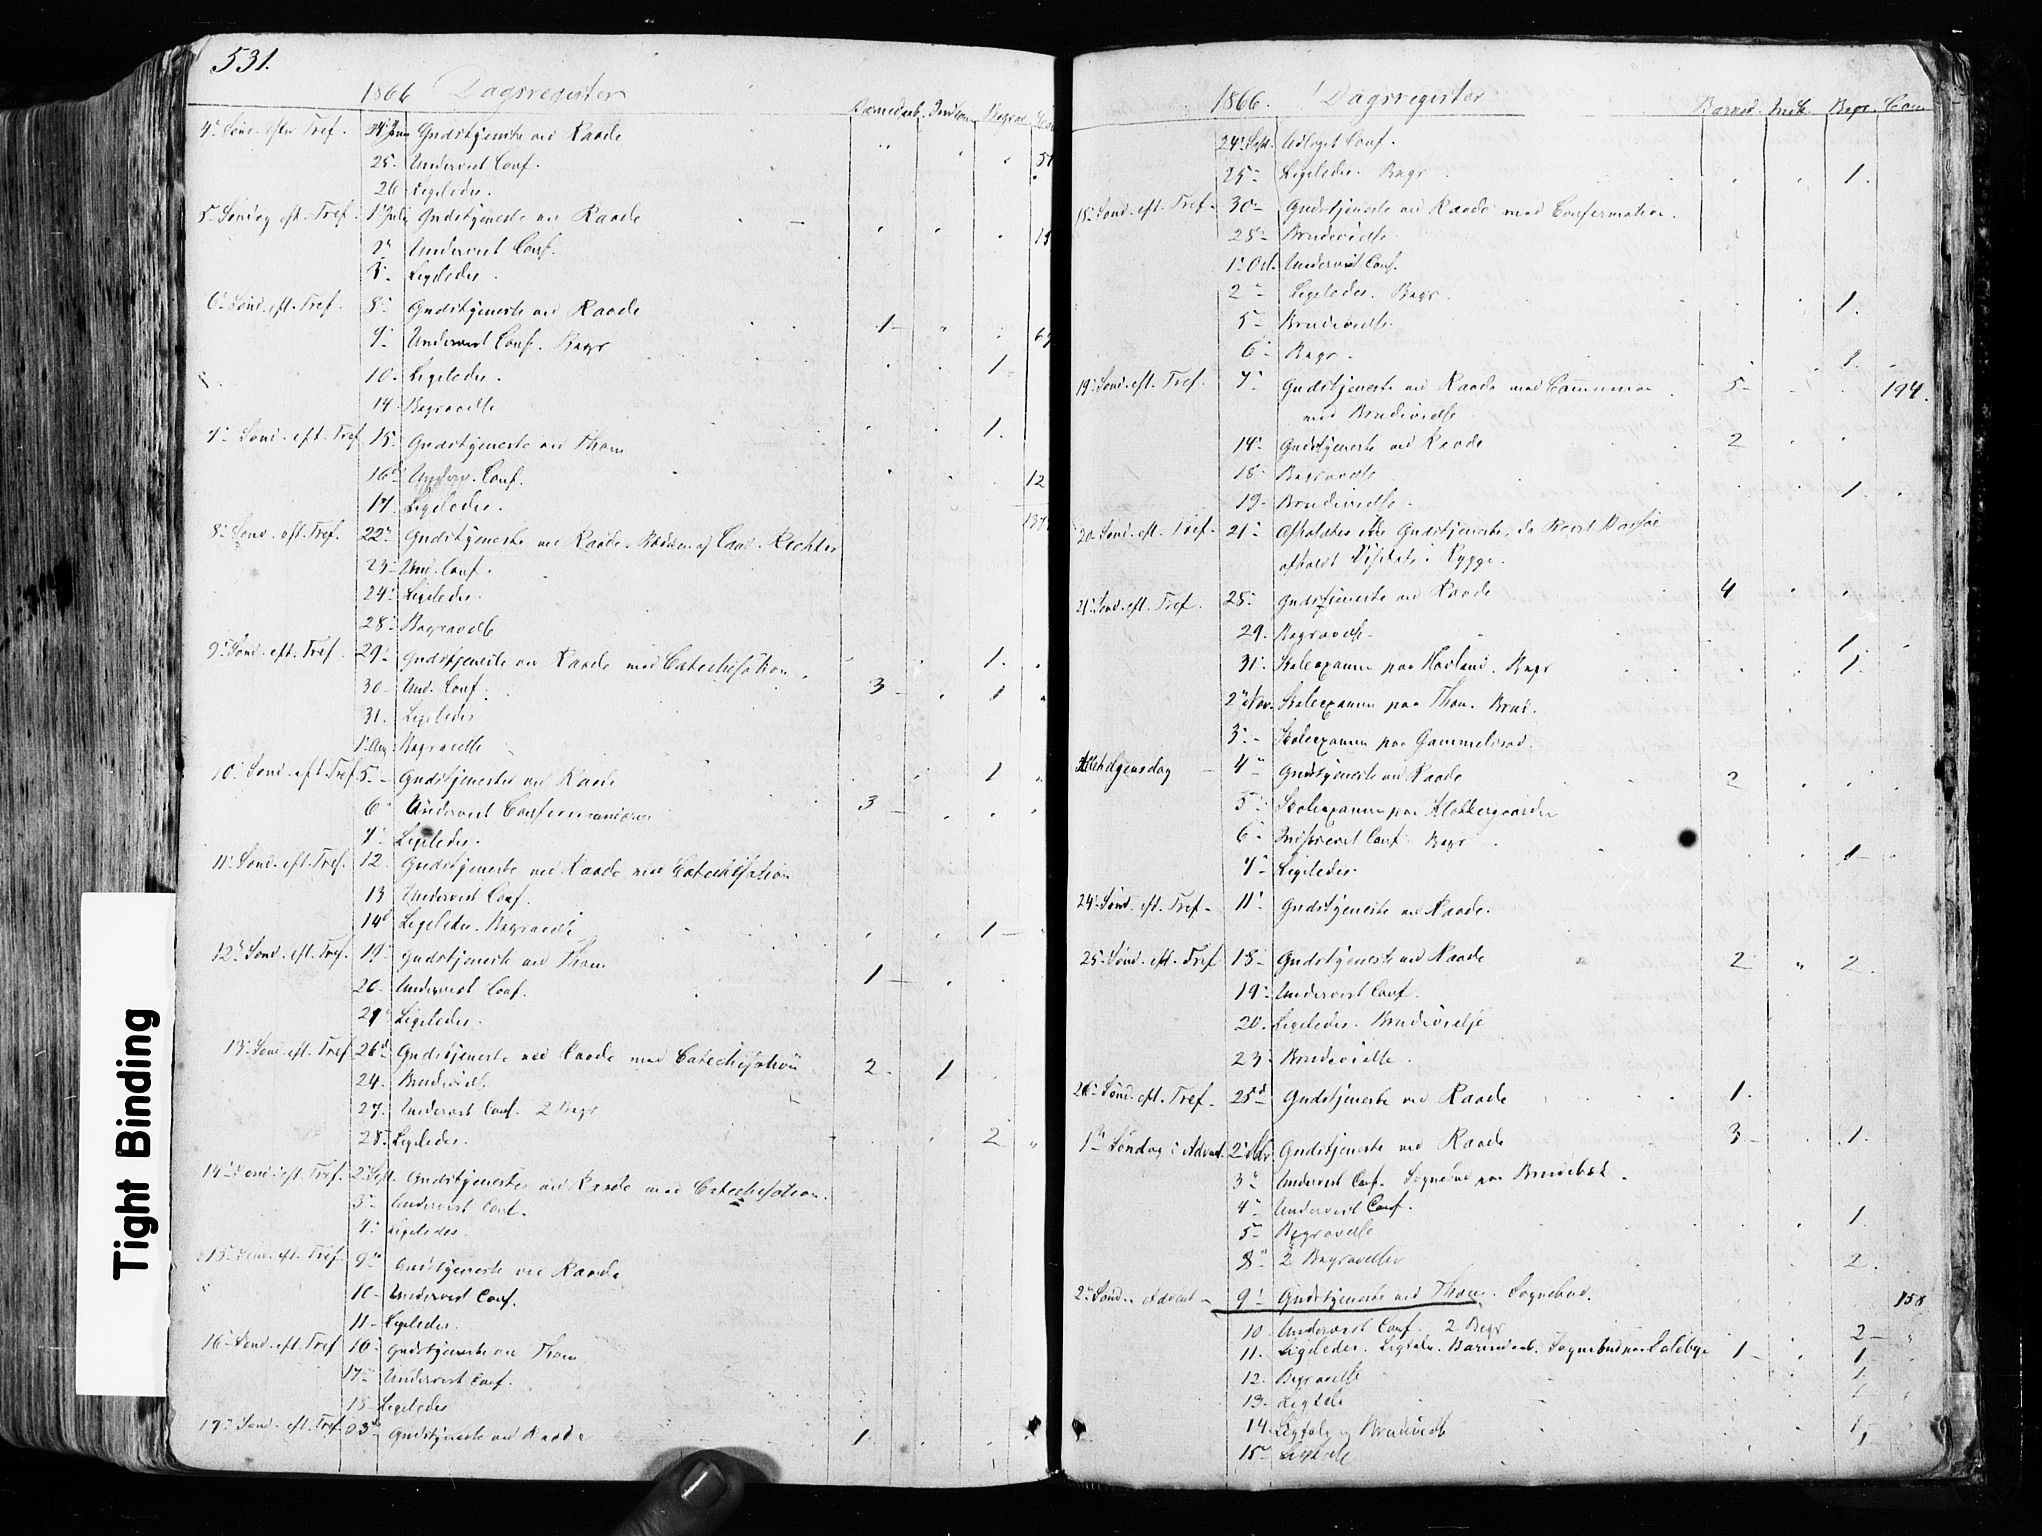 531.
1866 Dagsregister
Barnedaab. Begrav.
4de Sønd. efter Tref. 24 Juni Gudstjeneste ved Raade
25. Undervist Conf. 51
26 Ligeledes.
5te Søndag eft. Tref. 1 Juli Gudstjeneste ved Raade 15
2 Undervist Conf.
3. Ligeledes.
6te Sønd. eft. Tref. 8 Gudstjeneste ved Raade 1
9 Undervist Conf. Begr
10. Ligeledes. 1
14. Begravelse
7 Sønd. eft. Tref 15. Gudstjeneste ved Thom 1.
16 Underv. Conf. 12
17. Ligeledes.
8 Sønd. eft. Tref. 22 Gudstjeneste ved Raade. af Cand. Richter
23 Und. Conf.
24 Ligeledes.
28 Begravelse
9 Sønd. eft. Tref. 29 Gudstjeneste ved Raade med Catechisation 1.
30 Und. Conf. 3 1
31. Ligeledes
1 Aug Begravelse
10 Sønd. eft Tref. 5 Gudstjeneste ved Raade 1
6 Undervist Confirmanderne 3
7 Ligeledes.
11 Sønd. eft. Tref. 12 Gudstjeneste ved Raade med Catechisation
13 Undervist Conf.
14 Ligeledes. Begravelse 1
12 Sønd. eft. Tref. 19 Gudstjeneste ved Thom
20 Undervist Conf. 1
21 Ligeledes.
13 Sønd. eft. Tref 26 Gudstjeneste ved Raade med Catechisation 2 1
24. Brudevielse
27. Undervist Conf. 2 Begr
28. Ligeledes. 2
14 Sønd. eft. Tref. 2 Sept. Gudstjeneste ved Raade med Catechisation.
3 Undervist Conf.
4 Ligeledes.
15 Sønd. eft. Tref. 9 Gudstjeneste ved Raade
10 Undervist Conf.
11 Ligeledes.
16 Sønd. eft. Tref 16 Gudstjeneste ved Thom
17 Undervist Conf.
18 Ligeledes
17 Sønd. eft. Tref. 23 Gudstjeneste ved Raade 1.
1866. Dagsregister
Barned. Intr. Begr. Com
24 Sept. Conf.
25 Ligeledes. Begr 1.
Sønd. eft. Tref. 30 Gudstjeneste ved Raade med Confirmation.
28 Brudevielse
1 Oct. Undervist Conf.
2 Ligeledes. Begr. 1.
5 Brudevielse.
6 Begr. 1.
19 Sønd. eft. Tref. 7 Gudstjeneste ved Raade med Communion 5 194.
med Brudevielse
14 Gudstjeneste ved Raade 2
18 Begravelse 1.
19. Brudevielse.
20 Sønd. eft. Tref. 21 Afholdtes ikke Gudstjeneste, da Provst
afholdt Visitats i Rygge.
21 Sønd. eft. Tref. 28 Gudstjeneste ved Raade 4
29. Begravelse. 1.
31. Skoleexamen paa Havland. Begr 1.
2 Nov. Skoleexamen paa Thom. Brud.
3 Skoleexamen paa Gammelsrød.
Allehelgensdag 4 Gudstjeneste ved Raade 2
5 Skoleexamen paa Klokkergaarden
6 Undervist Conf. Begr 1
7 Ligeledes.
24 Sønd. eft. Tref. 11 Gudstjeneste ved Raade.
25 Sønd. eft. Tref 18 Gudstjeneste ved Raade 2 2
19 Undervist Conf.
20. Ligeledes. Brudevielse
23 Brudevielse.
26 Sønd. eft. Tref. 25 Gudstjeneste ved Raade 1.
1te Søndag i Advent. 2 Dcbr Gudstjeneste ved Raade 3 1.
3 Undervist Conf. Sognebud paa
4 Undervist Conf.
5 Begravelse 1.
8 2 Begravelser 2.
2 Sønd. i Advent 9 Gudstjeneste ved Thom. Sognebud. 158
10 Undervist Conf. 2 Begr 2
11. Ligeledes. Ligtale. Barnedaab. Sognebud paa 1 1
12. Begravelse 1
13. Ligtale 1
14 Ligtale og Brudevielse 1
15 Ligtale 1
Tight Binding